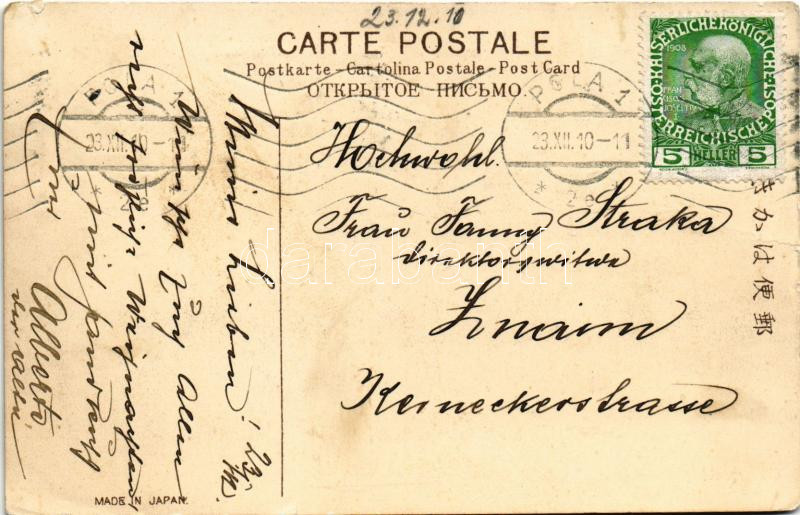 23.12.10
CARTE POSTALE
Postkarte - Cartolina Postale - Post Card
ОТКРЫТОЕ ПИСЬМО.
POLA 1
23.XII.10-11
* 2a
POLA 1
23.XII.10-11
* 2a
KAISERLICHE KÖNIGLICHE
ÖSTERREICHISCHE POST
1908
FRANCISCO JOSEPH I
5 HELLER 5
Hochwohl.
Frau Fanny Straka
Direktorswitwe
Znaim
Kerneckerstrasse
Meine Lieben! 23/XII.
Wünsche Euch Allen
recht fröhliche Weihnachten
und
Alberto
der Alte
きかは便郵
MADE IN JAPAN.
darabanth